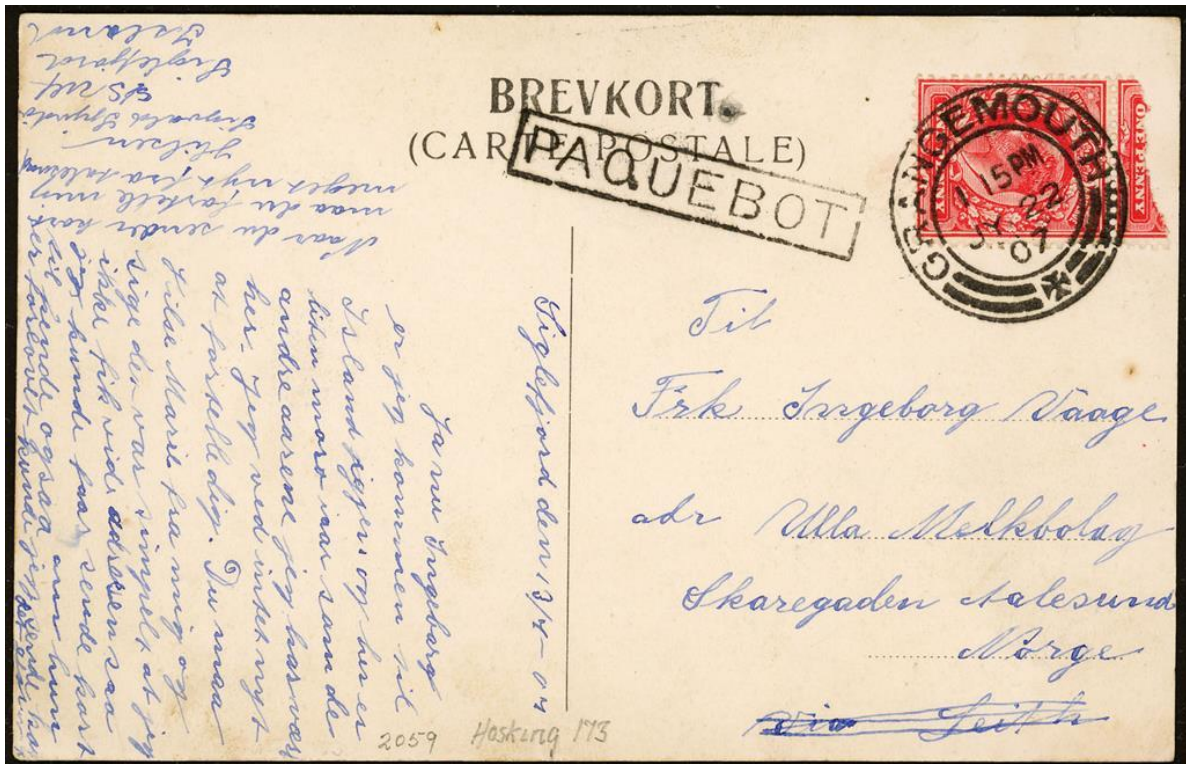 BREVKORT.
(CARTE POSTALE)
PAQUEBOT
GRANGEMOUTH
1 15 PM
JY 22
07
ONE PENNY
Til
Frk Ingeborg Vaage
adr Ulla Melkbolag
Skaregaden Aalesund
Norge
via Leith
Siglefjord den 13/7-07
Ja nu Ingeborg
er jeg kommen til
Island igjen og her er
liden moro iaar som de
andre aarene jeg har vært
her. Jeg ved intet nyt
at fortelle dig. Du maa
hilse Marie fra mig og
sige det var simpelt at jeg
ikke fik vide addressen saa
jeg kunde faat sende kort
til hende ogsaa om hun
er forlovet kunde jeg sende
Naar du sender kort
maa du fortelle mig
meget nyt fra Aalesund
Hilsen
Sigvald
S/S Ulf
Siglefjord
Island
2059 Hosking 173